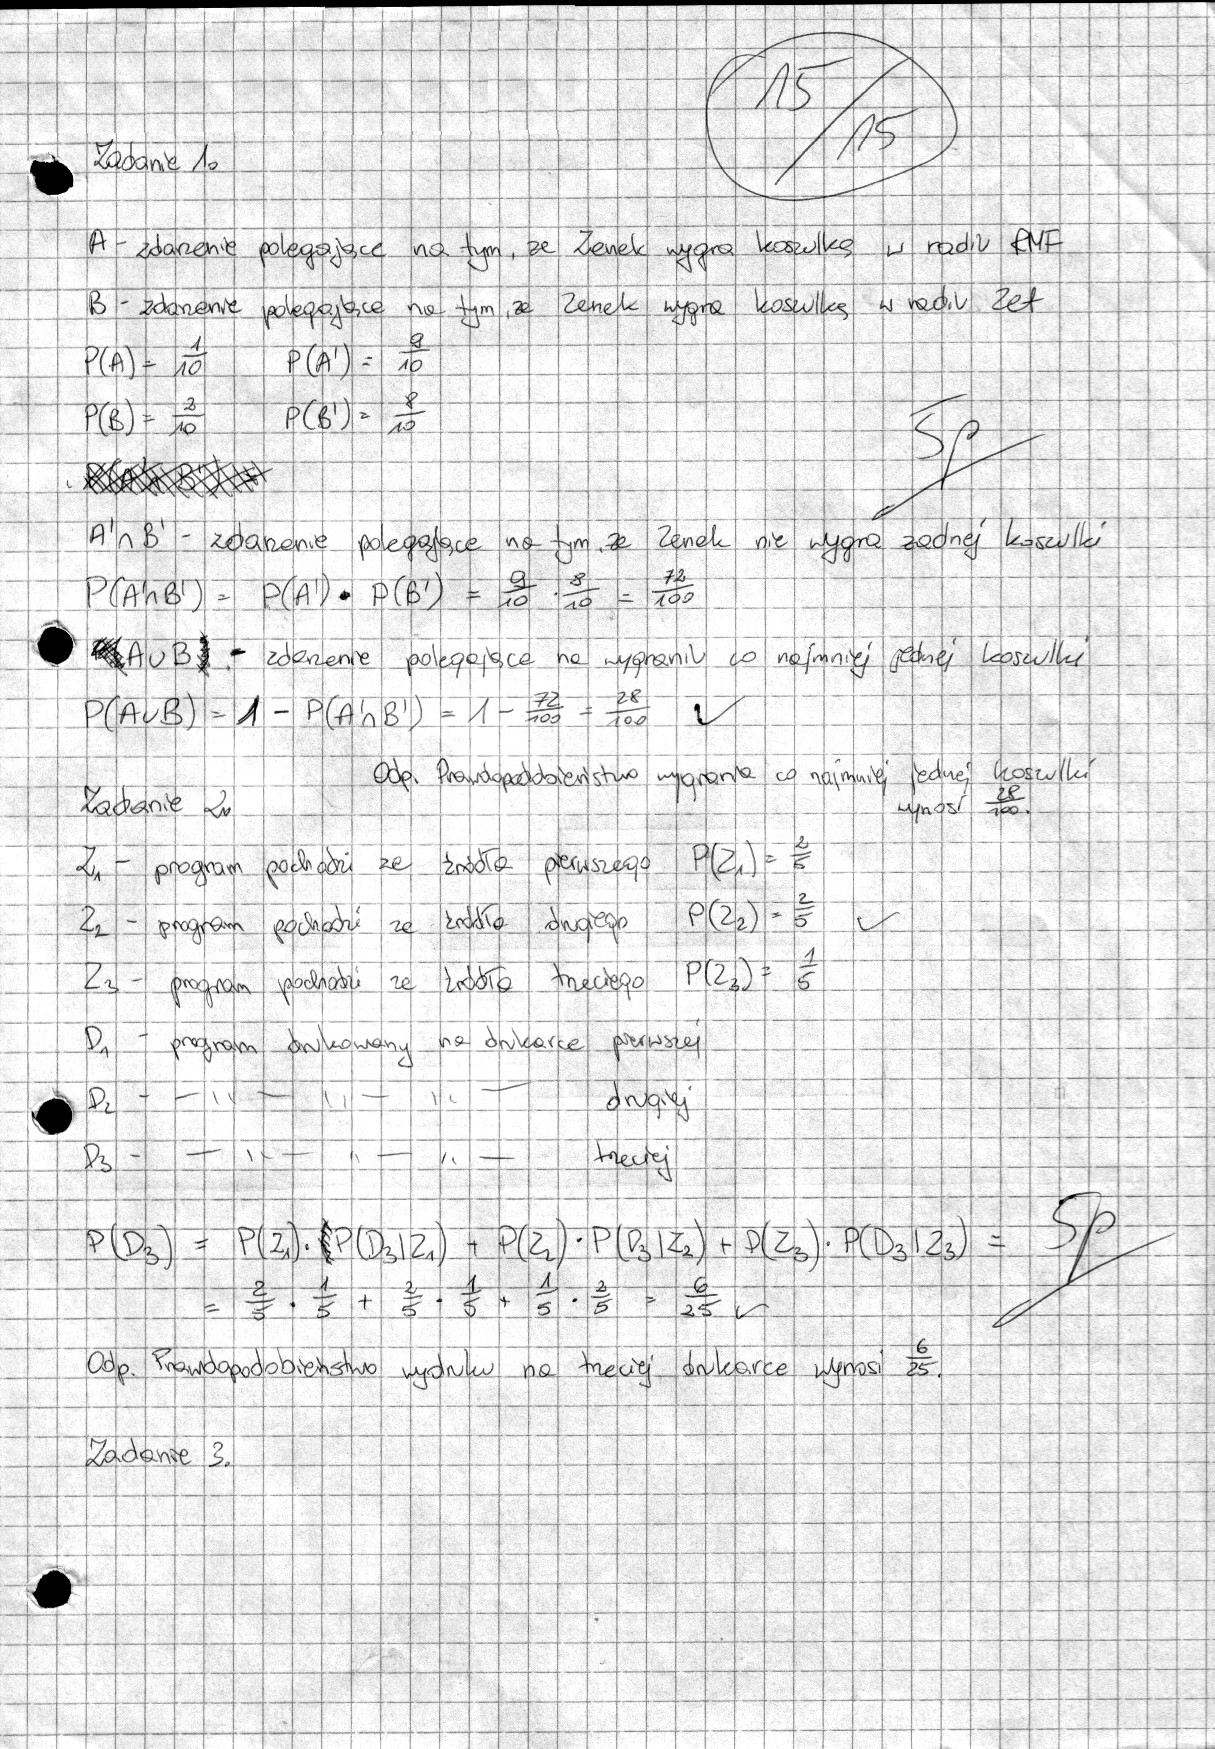 15/15
Zadanie 1.
A - zdarzenie polegające na tym, że Zenek wygra koszulkę w radiu RMF
B - zdarzenie polegające na tym, że Zenek wygra koszulkę w radiu Zet
P(A) = 1/10 P(A') = 9/10
P(B) = 2/10 P(B') = 8/10
5p
A'∩B' - zdarzenie polegające na tym, że Zenek nie wygra żadnej koszulki
P(A'∩B') = P(A') • P(B') = 9/10 · 8/10 = 72/100
A∪B - zdarzenie polegające na wygraniu co najmniej jednej koszulki
P(A∪B) = 1 - P(A'∩B') = 1 - 72/100 = 28/100 ✓
Odp. Prawdopodobieństwo wygrania co najmniej jednej koszulki
wynosi 28/100.
Zadanie 2.
Z₁ - program pochodzi ze źródła pierwszego P(Z₁) = 2/5
Z₂ - program pochodzi ze źródła drugiego P(Z₂) = 2/5 ✓
Z₃ - program pochodzi ze źródła trzeciego P(Z₃) = 1/5
D₁ - program drukowany na drukarce pierwszej
D₂ - — ,, — ,, — ,, — drugiej
D₃ - — ,, — ,, — ,, — trzeciej
P(D₃) = P(Z₁) · P(D₃|Z₁) + P(Z₂) · P(D₃|Z₂) + P(Z₃) · P(D₃|Z₃) =
5p
= 2/5 · 1/5 + 2/5 · 1/5 + 1/5 · 2/5 = 6/25 ✓
Odp. Prawdopodobieństwo wydruku na trzeciej drukarce wynosi 6/25.
Zadanie 3.